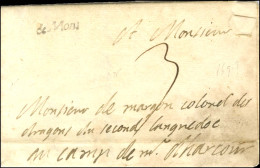 de Mons
A Monsieur
3
Monsieur de margon colonel des
dragons du second languedoc
au camp de mr. d'harcourt